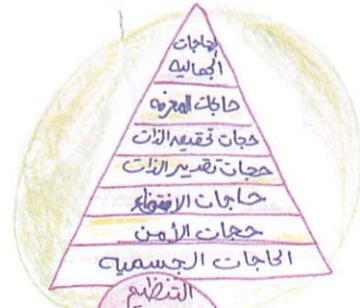 الحاجات
الجمالية
حاجات المعرفه
حجات تحقيق الذات
حجات تقدير الذات
حاجات الانتماء
حجات الأمن
الحاجات الجسميه
التنظيم